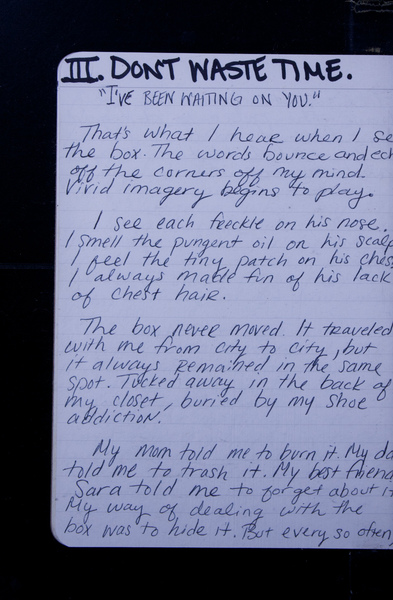 III. DON'T WASTE TIME.
"I'VE BEEN WAITING ON YOU."
That's what I hear when I se
the box. The words bounce and ech
off the corners off my mind.
Vivid imagery begins to play.
I see each freckle on his nose.
I smell the pungent oil on his scalp
I feel the tiny patch on his ches
I always made fun of his lack
of chest hair.
The box never moved. It traveled
with me from city to city, but
it always remained in the same
spot. Tucked away in the back of
my closet, buried by my shoe
addiction.
My mom told me to burn it. My da
told me to trash it. My best friend
Sara told me to forget about it
My way of dealing with the
box was to hide it. But every so often,